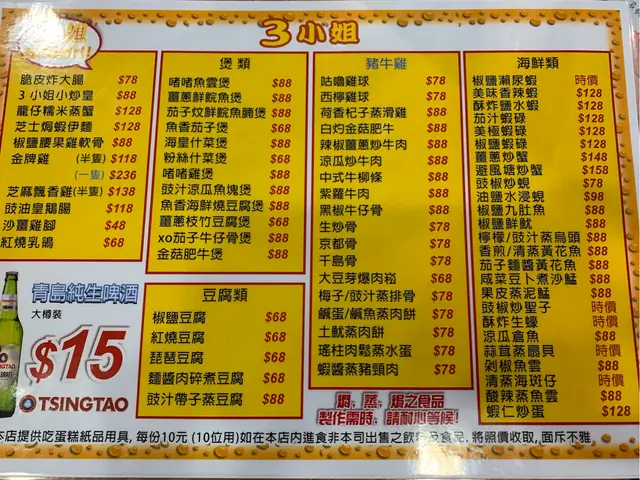 3小姐
脆皮炸大腸 $78
3 小姐小炒皇 $88
龍仔糯米蒸蟹 $128
芝士焗蝦伊麵 $128
椒鹽腰果雞軟骨 $88
金牌雞 (半隻) $118
(一隻) $236
芝麻飄香雞(半隻) $138
豉油皇鵝腸 $118
沙薑雞腳 $48
紅燒乳鴿 $68
青島純生啤酒
大樽裝
$15
TSINGTAO
煲類
啫啫魚雲煲 $88
薑蔥鮮鯇魚煲 $88
茄子炆鮮鯇魚腩煲 $88
魚香茄子煲 $68
海皇什菜煲 $88
粉絲什菜煲 $68
啫啫雞煲 $88
豉汁涼瓜魚塊煲 $88
魚香海鮮燒豆腐煲 $88
薑蔥枝竹豆腐煲 $68
xo茄子牛仔骨煲 $88
金菇肥牛煲 $88
豆腐類
椒鹽豆腐 $68
紅燒豆腐 $68
琵琶豆腐 $68
麵醬肉碎煮豆腐 $68
豉汁帶子蒸豆腐 $88
豬牛雞
咕嚕雞球 $78
西檸雞球 $78
荷香杞子蒸滑雞 $88
白灼金菇肥牛 $88
辣椒薑蔥炒牛肉 $88
涼瓜炒牛肉 $78
中式牛柳條 $88
紫蘿牛肉 $88
黑椒牛仔骨 $88
生炒骨 $78
京都骨 $78
千島骨 $78
大豆芽爆肉崧 $68
梅子/豉汁蒸排骨 $78
鹹蛋/鹹魚蒸肉餅 $78
土魷蒸肉餅 $78
瑤柱肉鬆蒸水蛋 $78
蝦醬蒸豬頸肉 $78
焗、蒸、焗之食品
製作需時，請耐心等候!
海鮮類
椒鹽瀨尿蝦 時價
美味香辣蝦 $128
酥炸鹽水蝦 $128
茄汁蝦碌 $128
美極蝦碌 $128
椒鹽蝦碌 $128
薑蔥炒蟹 $148
避風塘炒蟹 $158
豉椒炒蜆 $78
油鹽水浸蜆 $98
椒鹽九肚魚 $88
椒鹽鮮魷 $88
檸檬/豉汁蒸烏頭 $88
香煎/清蒸黃花魚 $88
茄子麵醬黃花魚 $88
咸菜豆卜煮沙鯭 $88
果皮蒸泥鯭 $88
豉椒炒聖子 時價
酥炸生蠔 時價
涼瓜倉魚 $88
蒜茸蒸扇貝 時價
剁椒魚雲 $88
清蒸海斑仔 時價
酸辣蒸魚雲 $88
蝦仁炒蛋 $128
本店提供吃蛋糕紙品用具, 每份10元 (10位用)如在本店內進食非本司出售之飲料及食品, 將照價收取, 面斥不雅